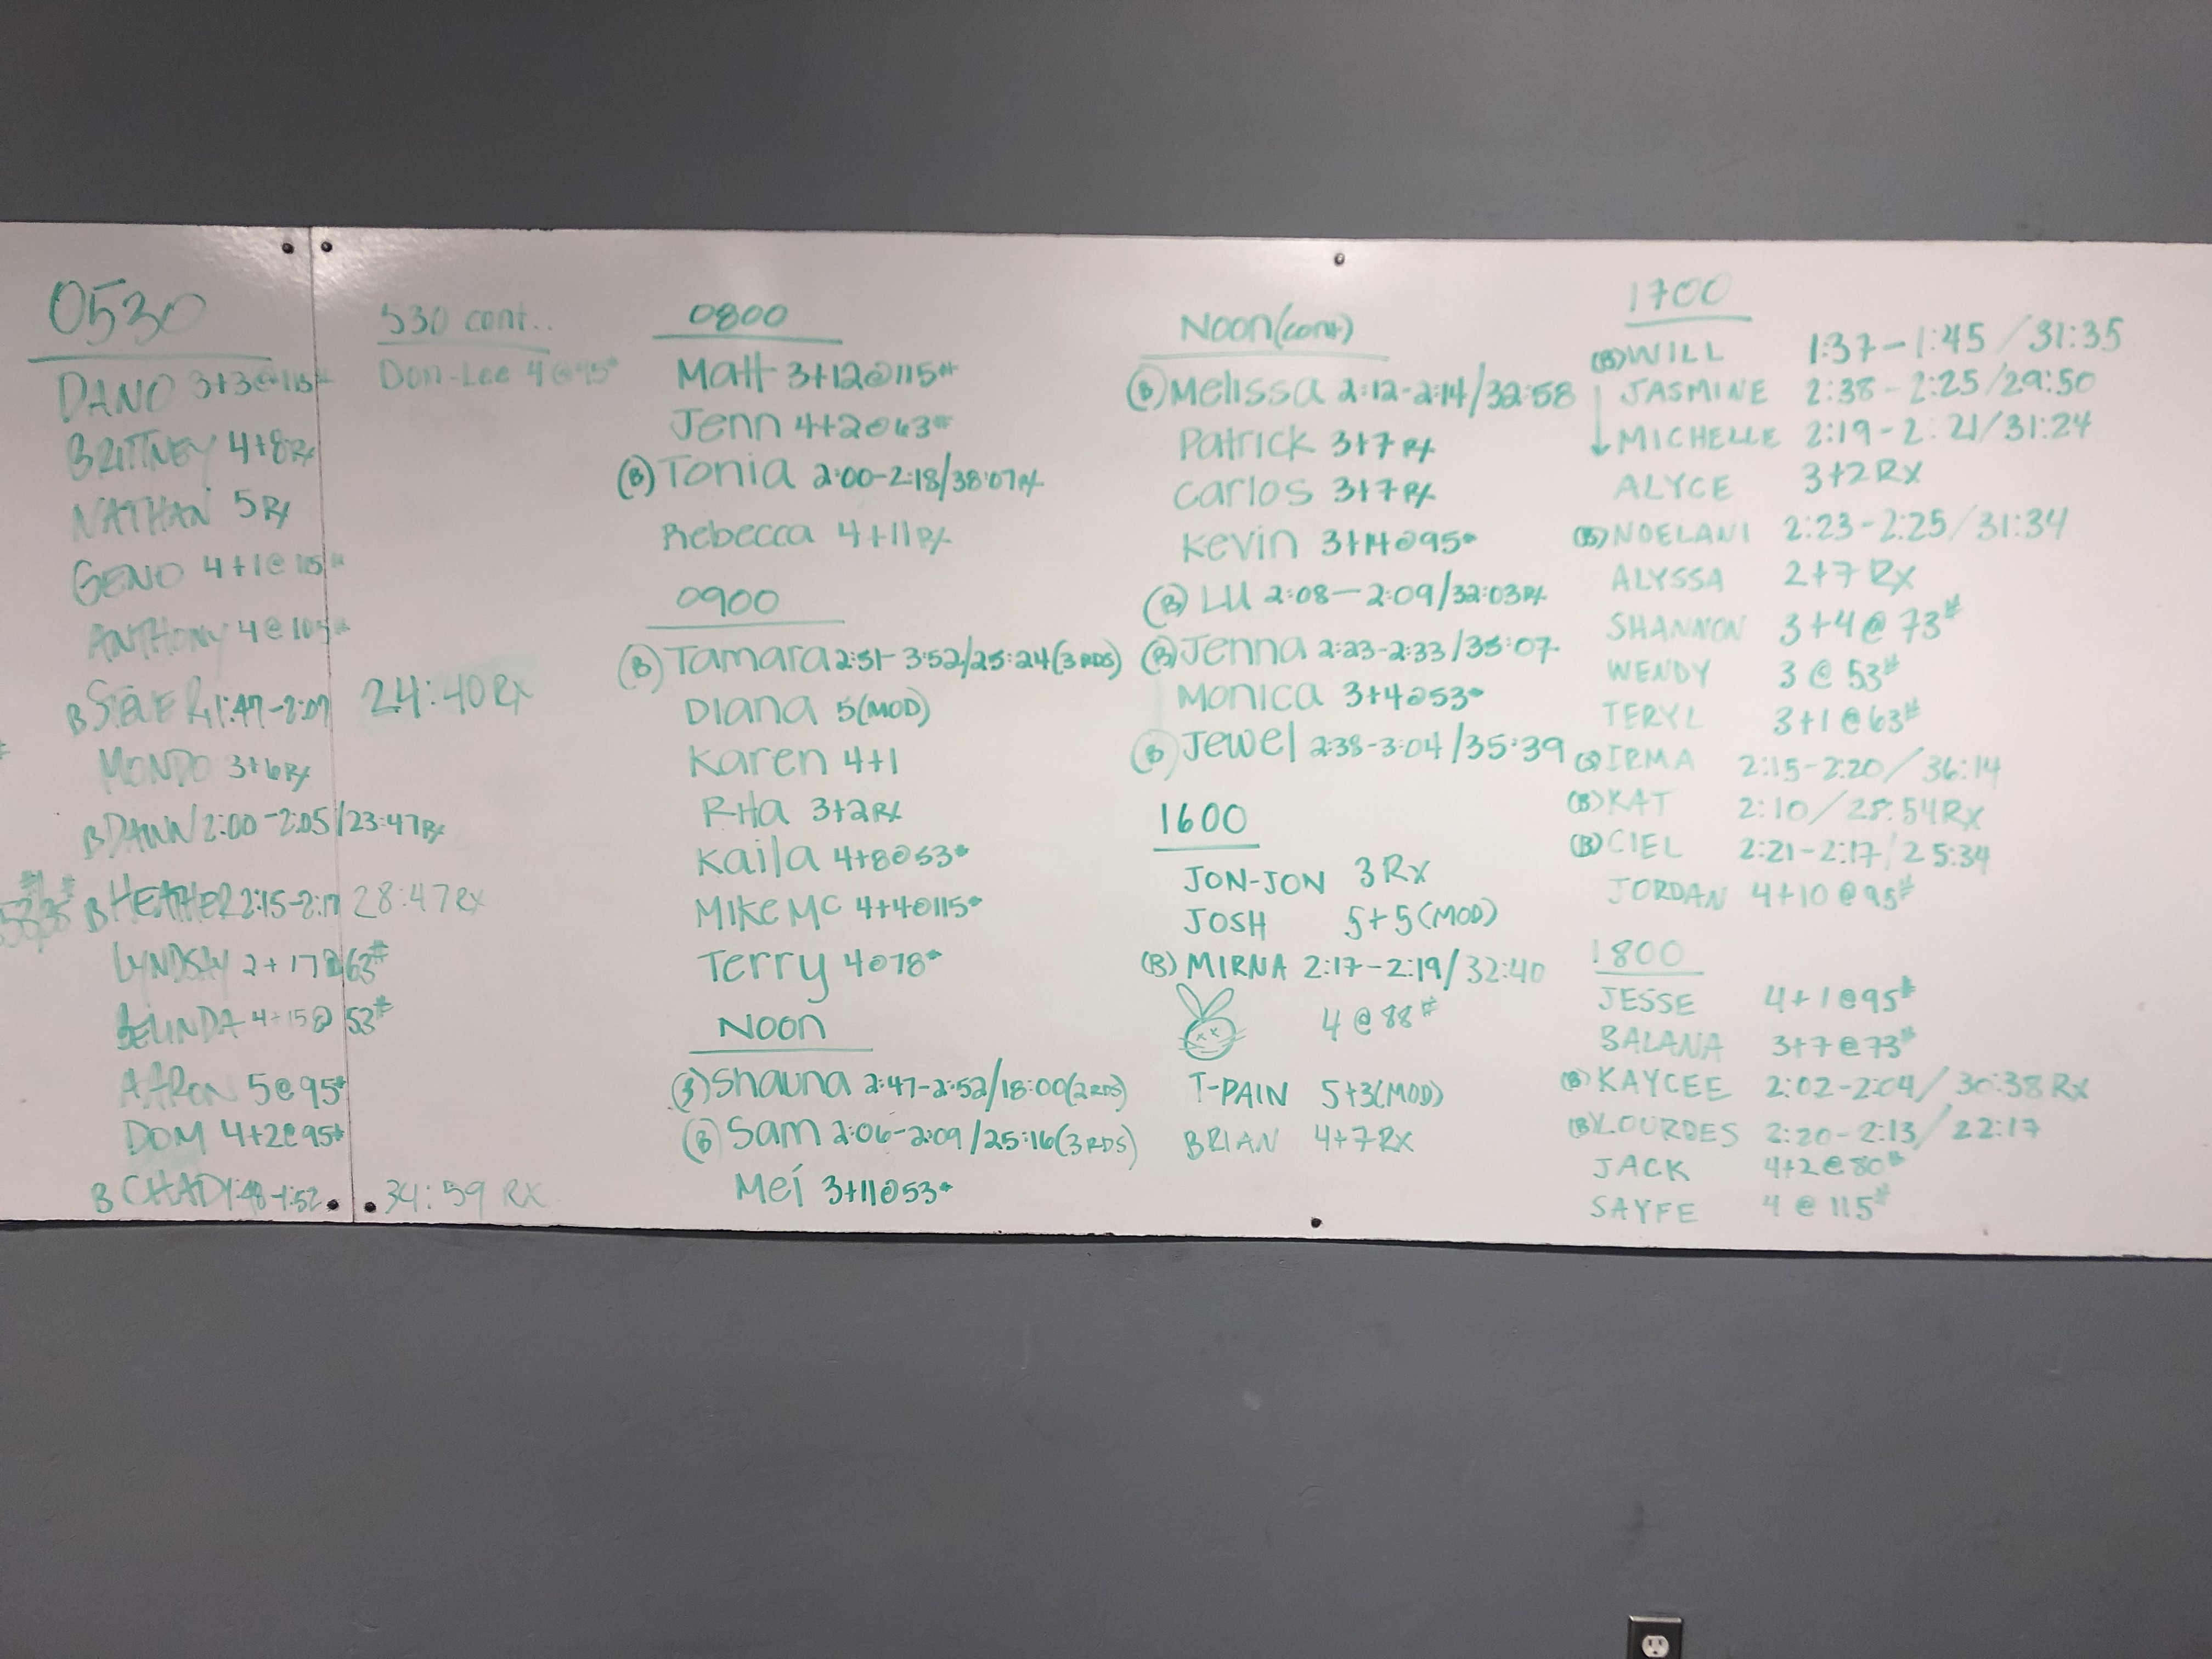 0530
DANO 3+3@115#
BRITTNEY 4+8Rx
NATHAN 5Rx
GENO 4+1@115#
ANTHONY 4@105#
B STEVE R 1:47-2:07 24:40Rx
MONDO 3+6Rx
B DANN 2:00-2:05/23:47Rx
B HEATHER 2:15-2:17 28:47Rx
LYNDSEY 2+17@63#
BELINDA 4+15@53#
AARON 5@95#
DOM 4+2@95#
B CHAD 1:48-1:52 34:59 RX
530 cont..
Don-Lee 4@95#
0800
Matt 3+12@115#
Jenn 4+2@63#
(B) Tonia 2:00-2:18/38:07Rx
Rebecca 4+11Rx
0900
(B) Tamara 2:51-3:52/25:24(3RDS)
Diana 5(MOD)
Karen 4+1
RHa 3+2Rx
Kaila 4+8@53#
Mike Mc 4+4@115#
Terry 4@78#
NOON
(B) Shauna 2:47-2:52/18:00(2RDS)
(B) Sam 2:06-2:09/25:16(3RDS)
Mei 3+11@53#
NOON(cont)
(B) Melissa 2:12-2:14/32:58
Patrick 3+7Rx
Carlos 3+7Rx
Kevin 3+14@95#
(B) LU 2:08-2:09/32:03Rx
(B) Jenna 2:23-2:33/35:07
Monica 3+4@53#
(B) Jewel 2:38-3:04/35:39
1600
JON-JON 3Rx
JOSH 5+5(MOD)
(B) MIRNA 2:17-2:19/32:40
4@88#
T-PAIN 5+3(MOD)
BRIAN 4+7Rx
1700
(B) WILL 1:37-1:45/31:35
JASMINE 2:38-2:25/29:50
MICHELLE 2:19-2:21/31:24
ALYCE 3+2Rx
(B) NOELANI 2:23-2:25/31:34
ALYSSA 2+7Rx
SHANNON 3+4@73#
WENDY 3@53#
TERYL 3+1@63#
(B) IRMA 2:15-2:20/36:14
(B) KAT 2:10/28:54Rx
(B) CIEL 2:21-2:17/25:34
JORDAN 4+10@95#
1800
JESSE 4+1@95#
BALANA 3+7@73#
(B) KAYCEE 2:02-2:04/30:38Rx
(B) LOURDES 2:20-2:13/22:17
JACK 4+2@80#
SAYFE 4@115#